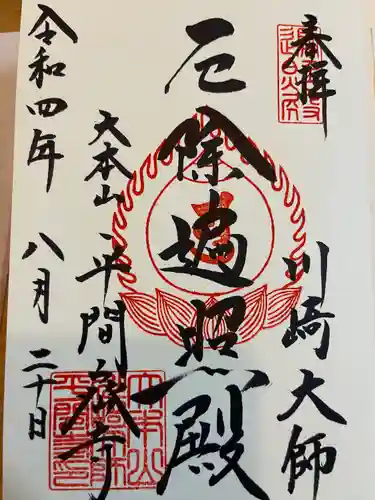 奉拝
川崎大師
厄除遍照殿
大本山
平間寺
令和四年
八月二十日